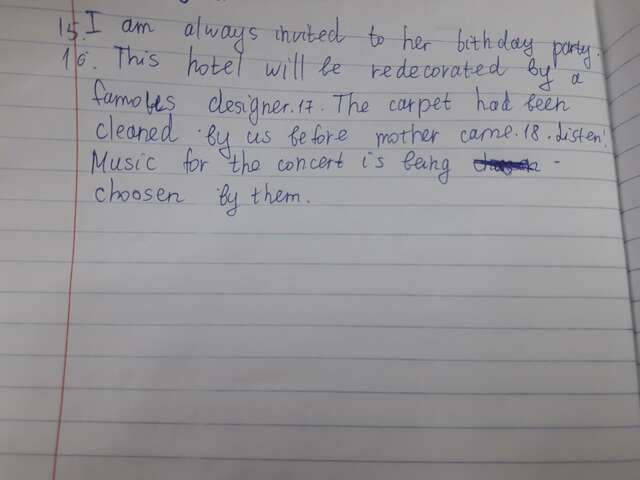 15. I am always invited to her bithday party.
16. This hotel will be redecorated by a
famous designer. 17. The carpet had been
cleaned by us before mother came. 18. Listen!
Music for the concert is being -
choosen by them.